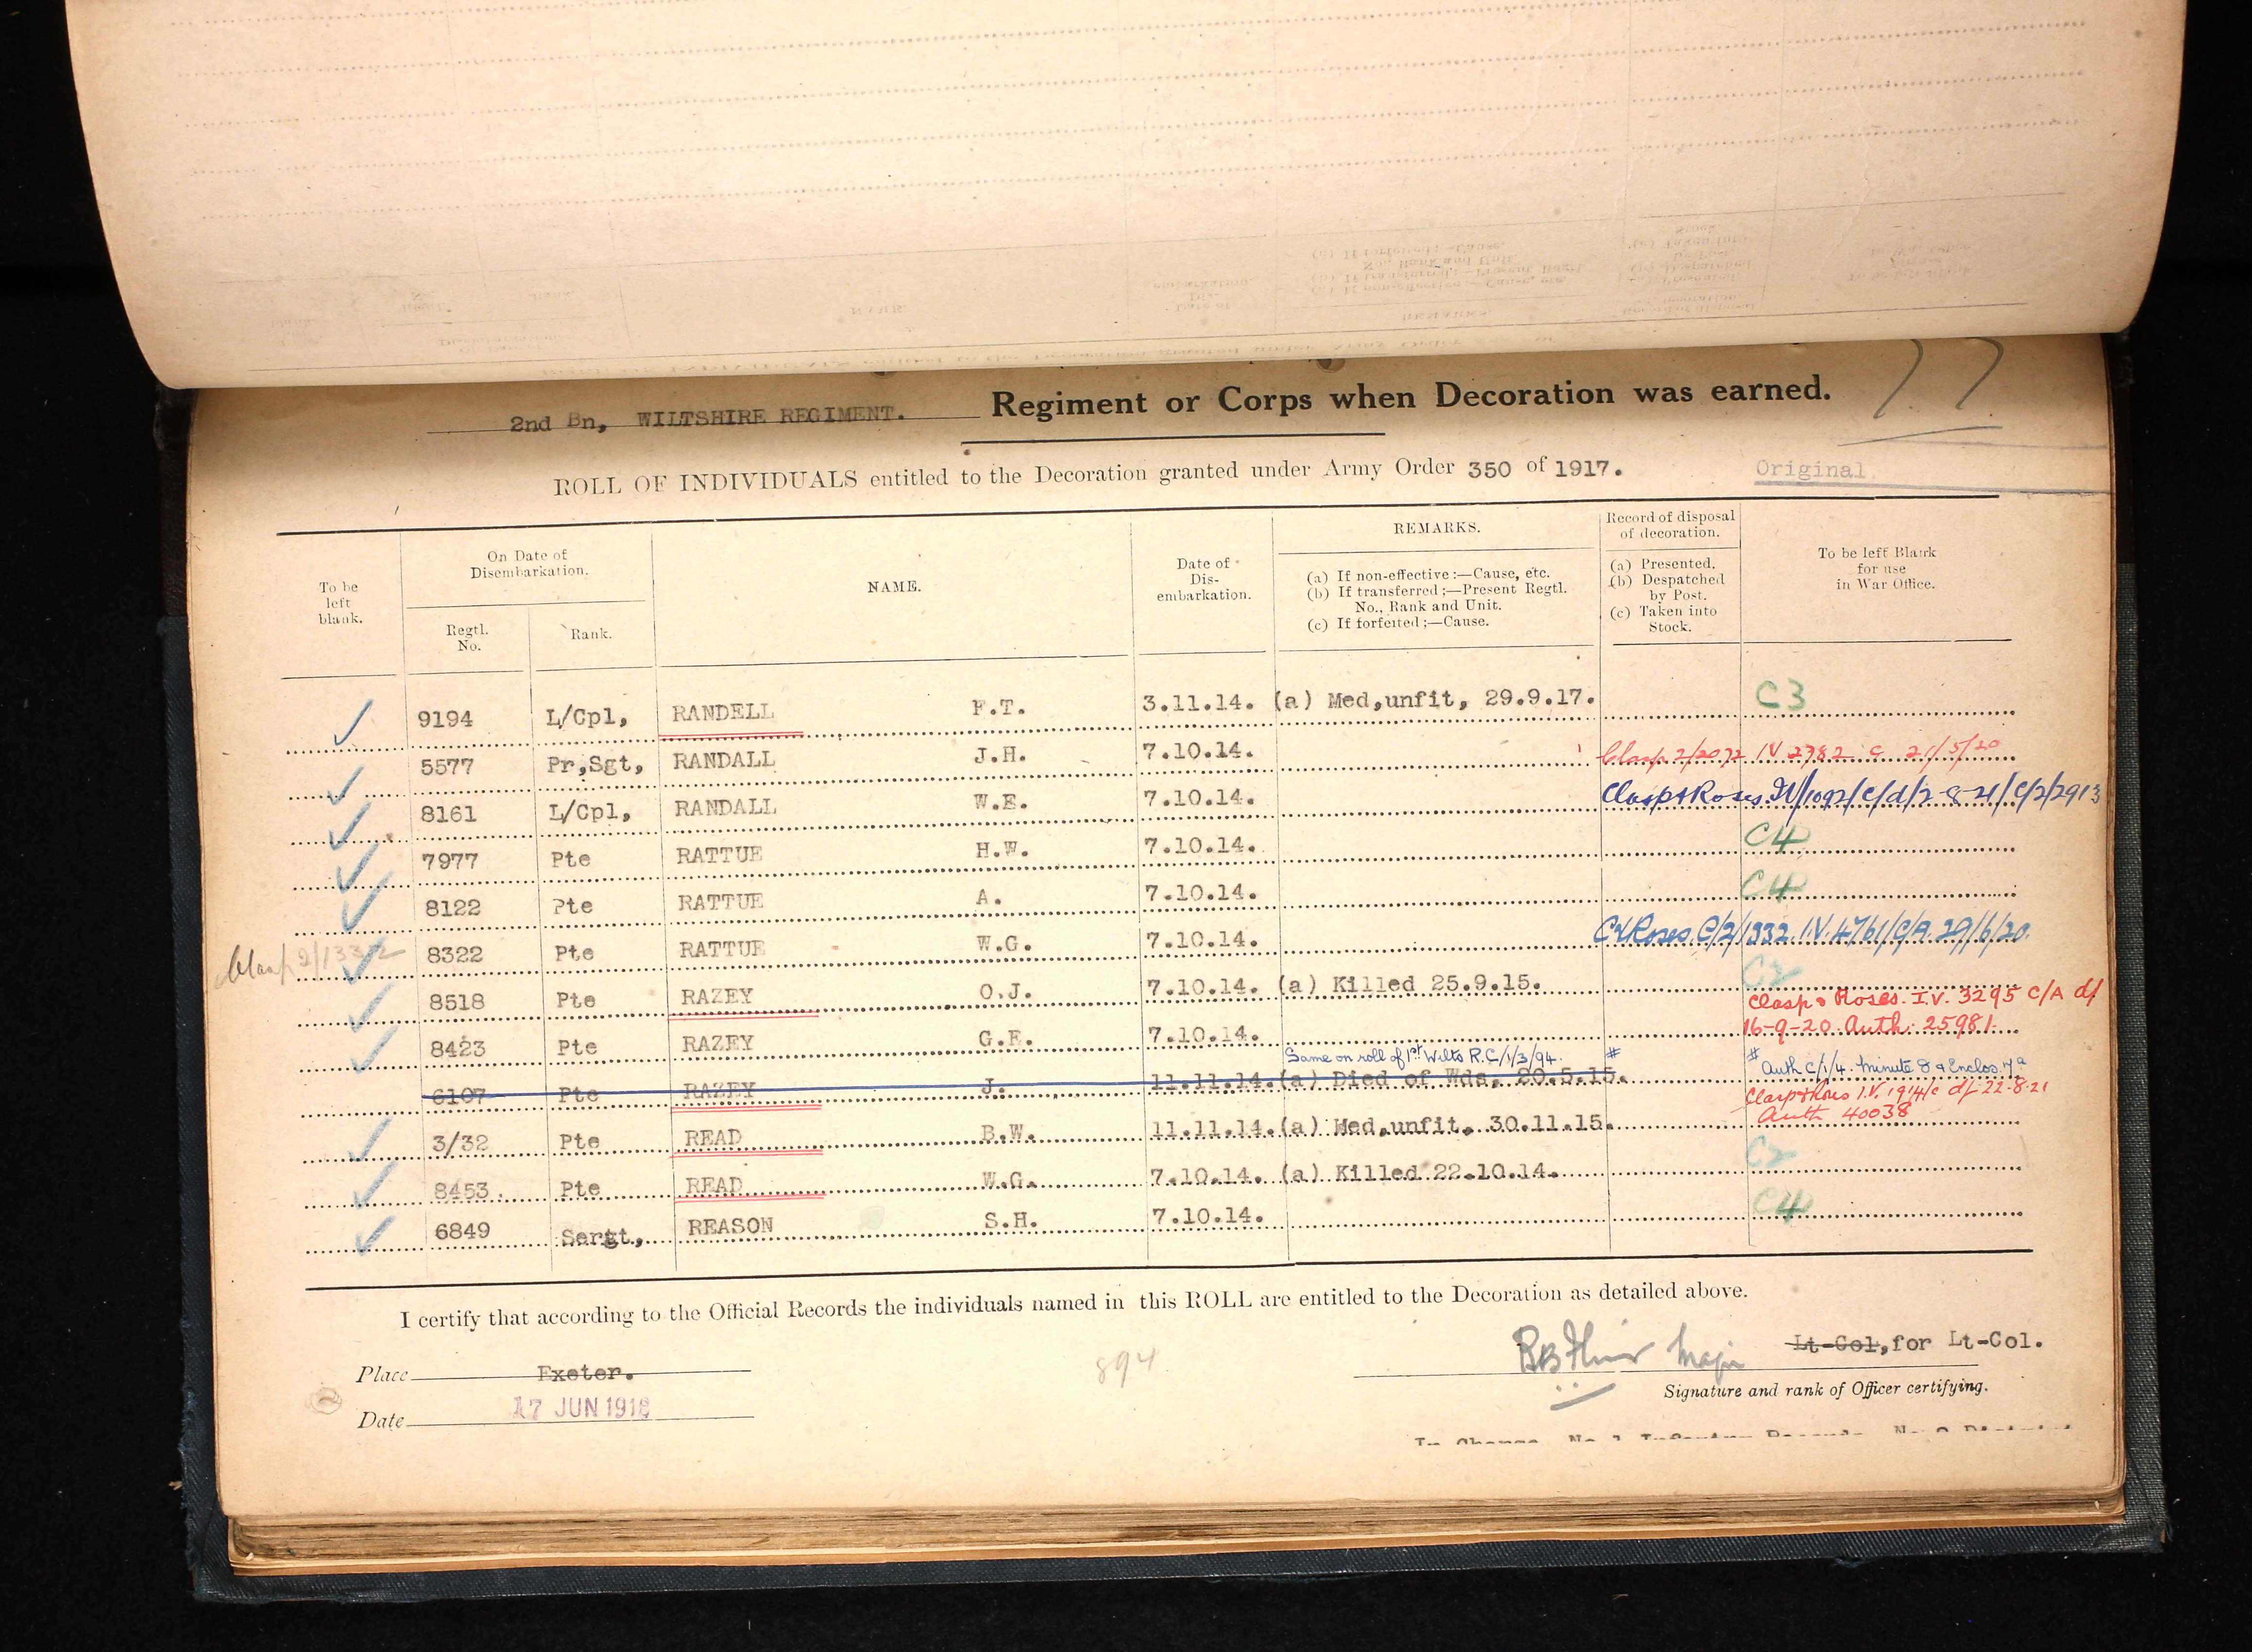 77
2nd Bn, WILTSHIRE REGIMENT. Regiment or Corps when Decoration was earned.
ROLL OF INDIVIDUALS entitled to the Decoration granted under Army Order 350 of 1917. Original.
To be left blank.
On Date of Disembarkation.
Regtl. No.
Rank.
NAME.
Date of Dis-embarkation.
REMARKS.
(a) If non-effective:—Cause, etc.
(b) If transferred;—Present Regtl. No., Rank and Unit.
(c) If forfeited;—Cause.
Record of disposal of decoration.
(a) Presented.
(b) Despatched by Post.
(c) Taken into Stock.
To be left Blank for use in War Office.
9194 L/Cpl, RANDELL F.T. 3.11.14. (a) Med,unfit, 29.9.17. C3
5577 Pr,Sgt, RANDALL J.H. 7.10.14. Clasp 2/2072 IV 2382 c 21/5/20
8161 L/Cpl, RANDALL W.E. 7.10.14. Clasp & Roses IV/1092/C/d/2-8-21/C/2/2913
7977 Pte RATTUE H.W. 7.10.14. C4
8122 Pte RATTUE A. 7.10.14. C4
Clasp 2/1332 8322 Pte RATTUE W.G. 7.10.14. C & Roses C/2/1332 I.V. 4761/C/A 29/6/20.
8518 Pte RAZEY O.J. 7.10.14. (a) Killed 25.9.15. C2
8423 Pte RAZEY G.E. 7.10.14. Clasp & Roses. I.V. 3295 C/A d/
16-9-20. Auth: 25981.
Same on roll of 1st Wilts R. C/1/3/94. # # Auth C/1/4. Minute 8 & Enclos. 7a
6107 Pte RAZEY J. 11.11.14. (a) Died of Wds, 20.5.15.
3/32 Pte READ B.W. 11.11.14. (a) Med,unfit, 30.11.15. Clasp & Roses I.V. 1914/c d/ 22-8-21
Auth 40038
8453. Pte READ W.G. 7.10.14. (a) Killed 22.10.14. C2
6849 Sergt, REASON S.H. 7.10.14. C4
I certify that according to the Official Records the individuals named in this ROLL are entitled to the Decoration as detailed above.
Major Lt-Col, for Lt-Col.
Place Exeter. 894
Signature and rank of Officer certifying.
Date 17 JUN 1918
In Charge, No 1 Infantry Records, No 8 District